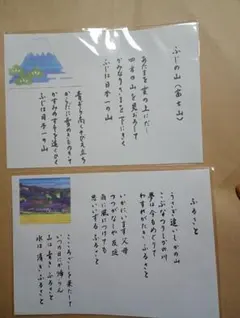 ふじの山（富士山）
あたまを雲の上に出し
四方の山を見おろして
かみなりさまを下にきく
ふじは日本一の山
青ぞら高くそびえ立ち
からだに雪のきものきて
かすみのすそを遠くひく
ふじは日本一の山
ふるさと
うさぎ追いしかの山
こぶなつりしかの川
夢は今もめぐりて
わすれがたきふるさと
いかにいます父母
つつがなきや友垣
雨に風につけても
思いいずるふるさと
こころざしを果たして
いつの日にか帰らん
山は青きふるさと
水は清きふるさと